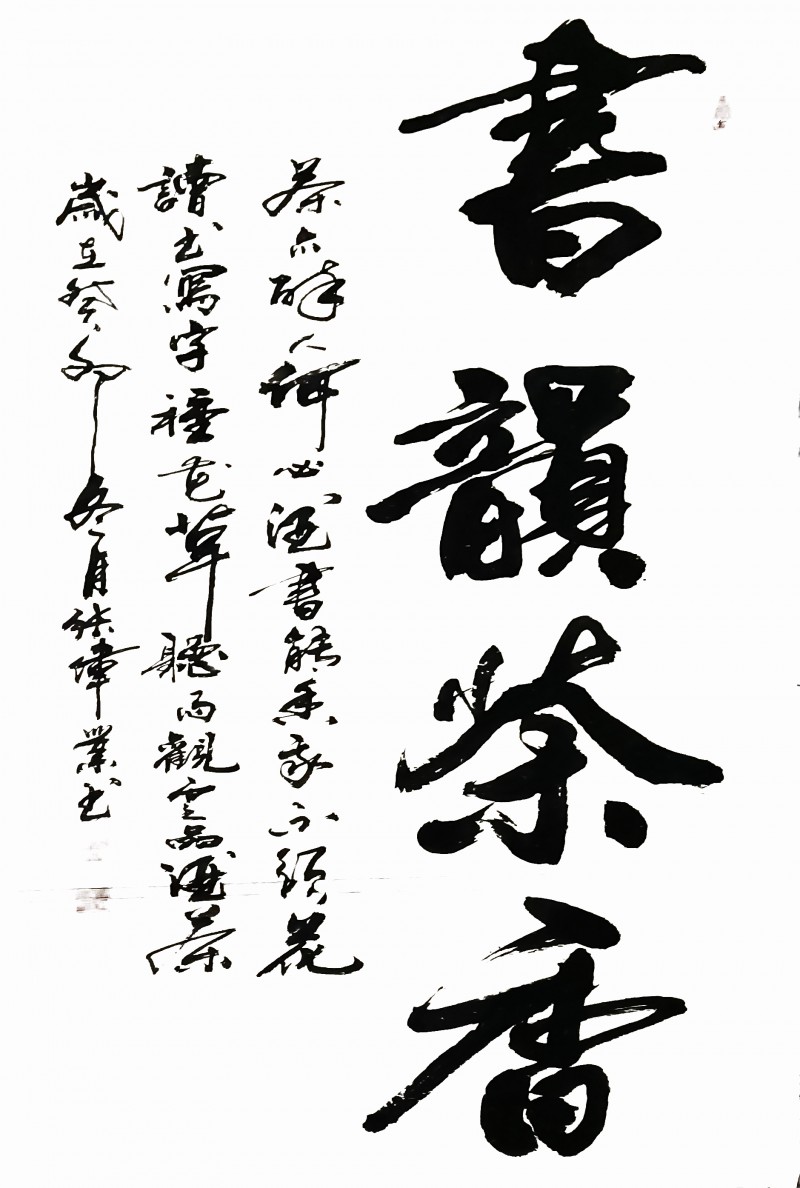 書韻茶香
茶亦醉人何必酒書能香我不須花
讀书寫字種花草聽雨觀雲品酒茶
歲在癸卯冬月張偉業书